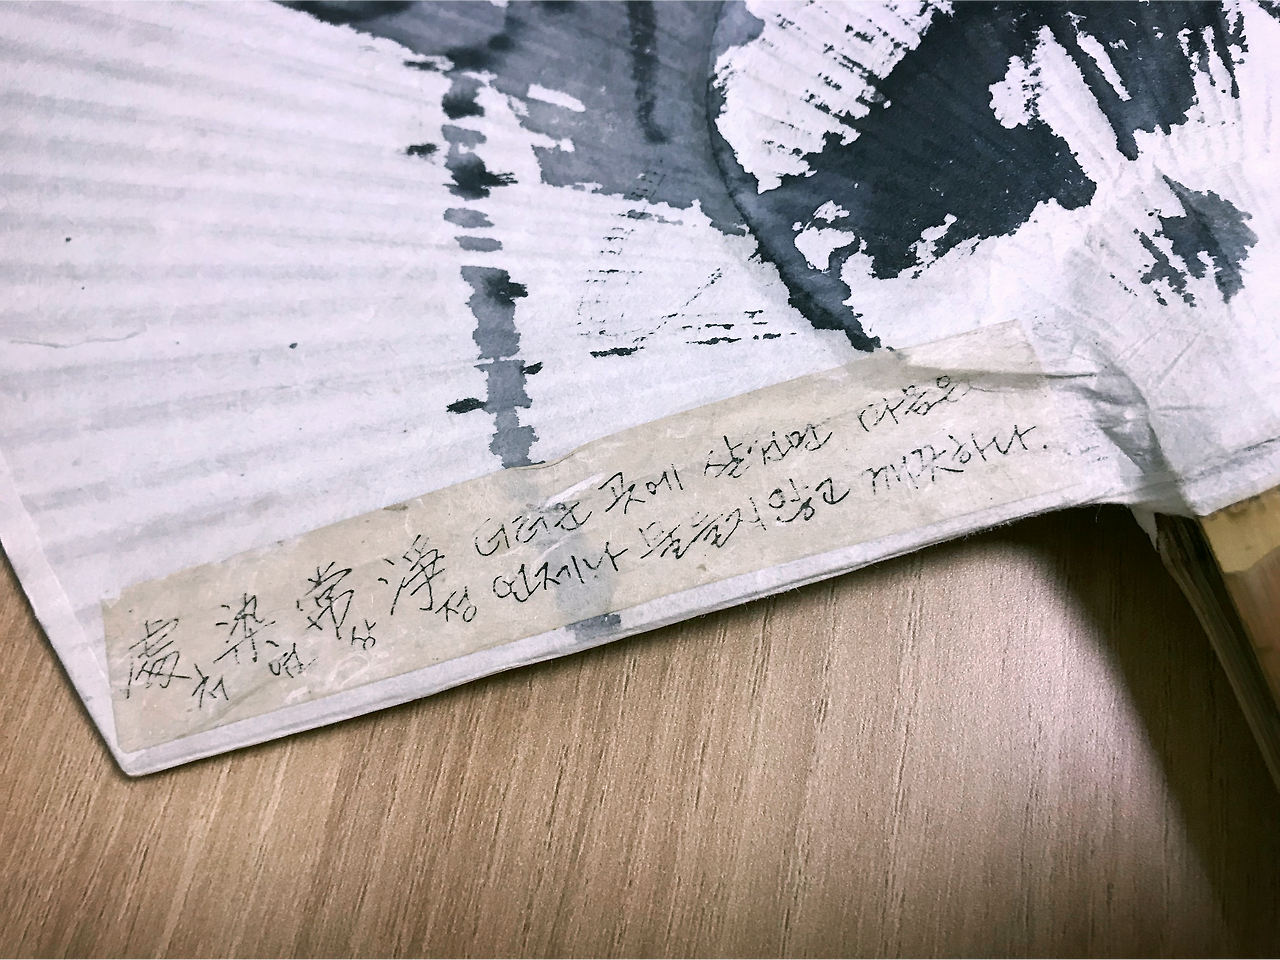 處染常淨
처염상정
더러운 곳에 살지만 마음은
언제나 물들지 않고 깨끗하다.